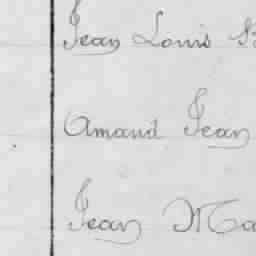 Jean Louis
Amand Jean
Jean Ma